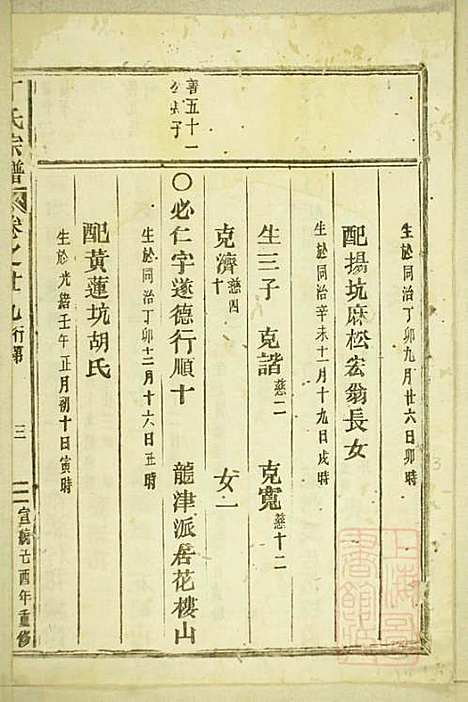 生於同治丁卯九月廿六日卯時
配揚坑麻松宏翁長女
生於同治辛未十一月十九日戌時
生三子 克諧慈二 克寬慈十二
克濟慈四十 女一
善五十一公長子
○必仁字遂德行順十 龍津派居花樓山
生於同治丁卯十二月十六日丑時
配黃蓮坑胡氏
生於光緒壬午正月初十日寅時
丁氏宗譜 卷之廿九 行第 三 宣統己酉年重修
上海圖書館藏